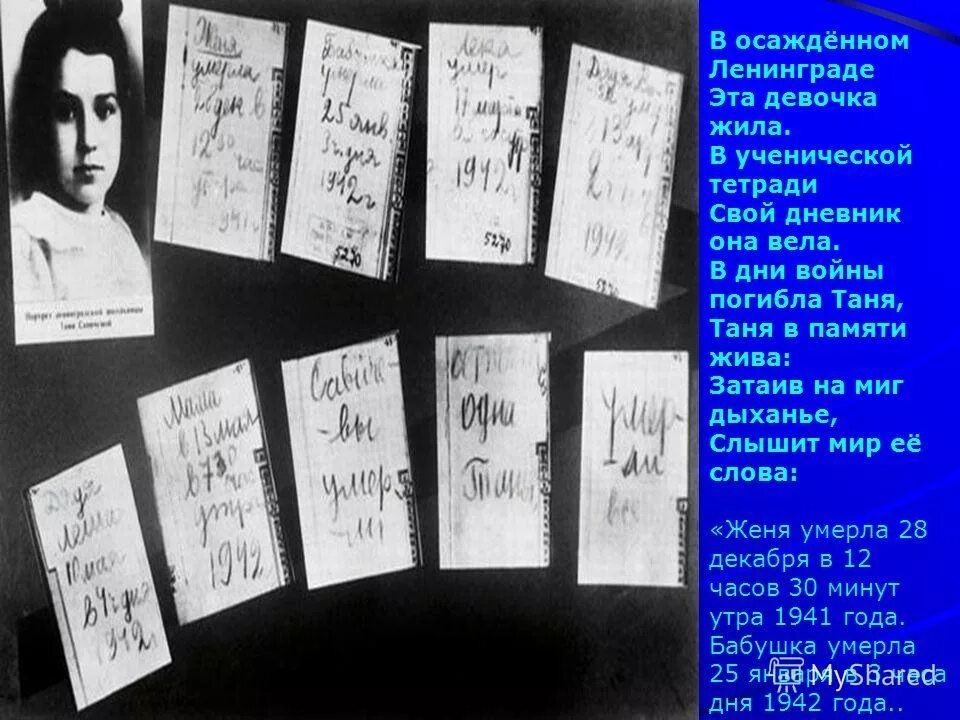 Женя
умерла
28 дек в
12 30
час
утра
1941 г
Бабушка
умерла
25 янв.
3 ч дня
1942 г
5270
Лека
умер
17 марта
1942 г
5270
Дядя
13 апр
2 ч
1942
5270
Портрет ленинградской школьницы
Тани Савичевой
Дядя
Леша
10 мая
в 4 ч дня
1942 г
Мама
в 13 мая
в 7 30
час
утра
1942
Савиче-
-вы
умер-
-ли
одна
Таня
умер-
-ли
все
В осаждённом
Ленинграде
Эта девочка
жила.
В ученической
тетради
Свой дневник
она вела.
В дни войны
погибла Таня,
Таня в памяти
жива:
Затаив на миг
дыханье,
Слышит мир её
слова:
«Женя умерла 28
декабря в 12
часов 30 минут
утра 1941 года.
Бабушка умерла
25 января в 3 часа
дня 1942 года..
MyShared